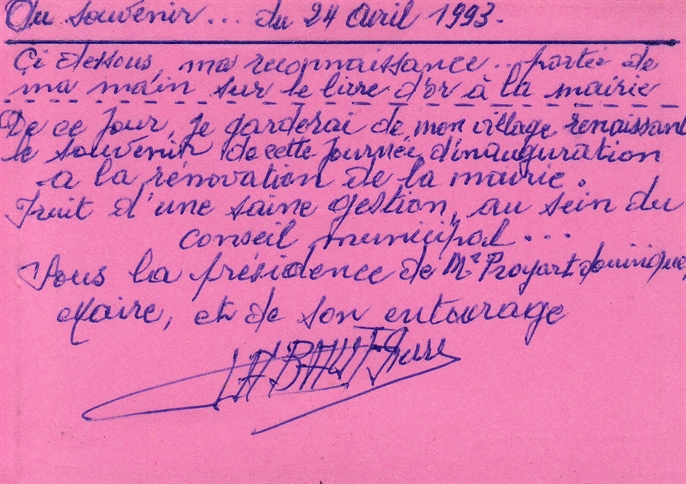 Du souvenir... du 24 avril 1993.
Ci dessous, ma reconnaissance.. portée de
ma main sur le livre d'or à la mairie
De ce jour, je garderai de mon village renaissant
le souvenir de cette journée d'inauguration
a la rénovation de la mairie.
Fruit d'une saine gestion, au sein du
conseil municipal...
Sous la présidence de Mr Proyart dominique,
Maire, et de son entourage